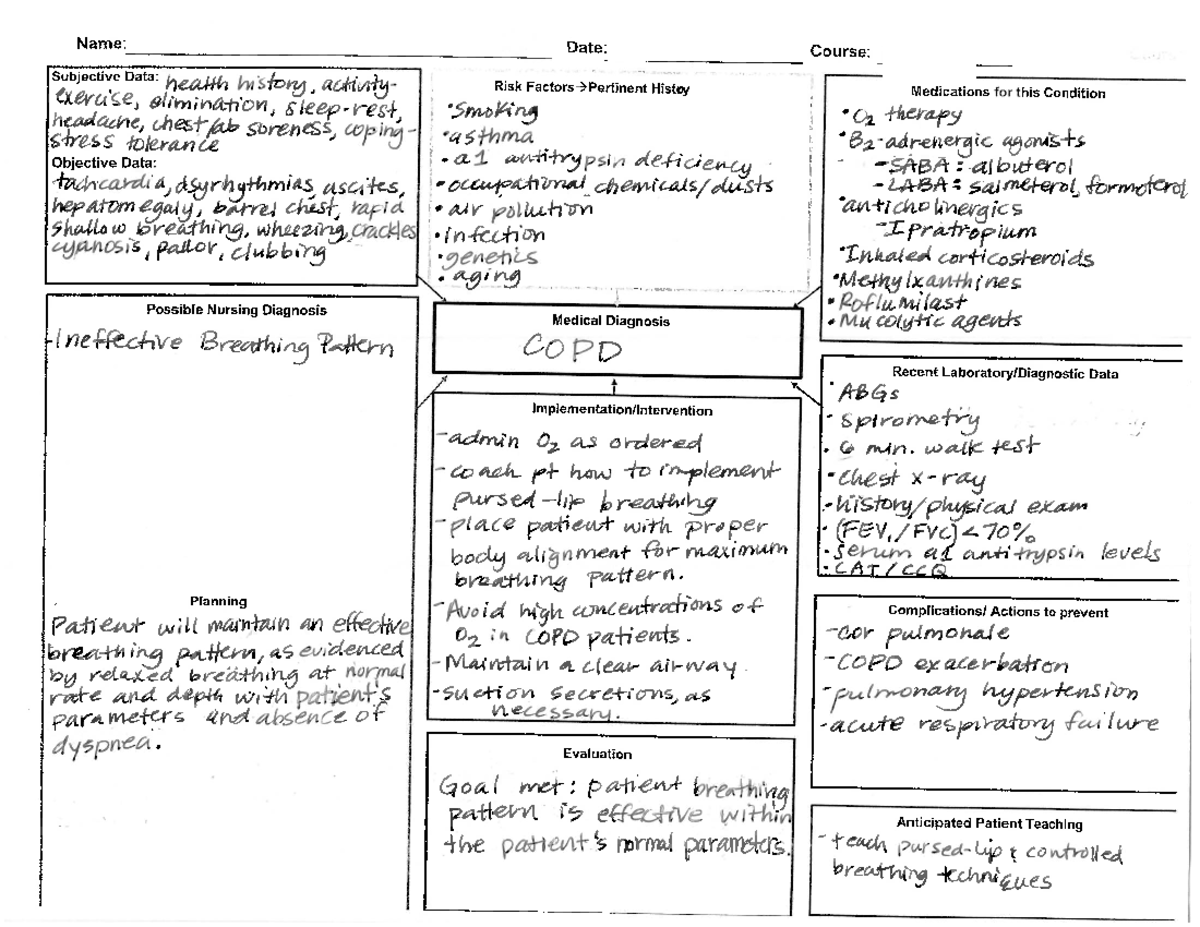 Name:
Date:
Course:
Subjective Data: health history, activity-
exercise, elimination, sleep-rest,
headache, chest/ab soreness, coping-
stress tolerance
Objective Data:
tachcardia, dsyrhythmias, ascites,
hepatomegaly, barrel chest, rapid
shallow breathing, wheezing, crackles
cyanosis, pallor, clubbing
Risk Factors→Pertinent Histoy
•Smoking
•asthma
•a1 antitrypsin deficiency
•occupational chemicals/dusts
•air pollution
•infection
•genetics
•aging
Medications for this Condition
•O₂ therapy
•B₂-adrenergic agonists
-SABA: albuterol
-LABA: salmeterol, formoterol
•anticholinergics
-Ipratropium
•Inhaled corticosteroids
•Methylxanthines
•Roflumilast
•Mucolytic agents
Possible Nursing Diagnosis
-Ineffective Breathing Pattern
Medical Diagnosis
COPD
Recent Laboratory/Diagnostic Data
•ABGs
•Spirometry
•6 min. walk test
•Chest x-ray
•history/physical exam
•(FEV₁/FVC)<70%
•Serum a1 antitrypsin levels
•CAT/CCQ
Implementation/Intervention
-admin O₂ as ordered
-coach pt how to implement
pursed-lip breathing
-place patient with proper
body alignment for maximum
breathing pattern.
-Avoid high concentrations of
O₂ in COPD patients.
-Maintain a clear airway.
-suction secretions, as
necessary.
Planning
Patient will maintain an effective
breathing pattern, as evidenced
by relaxed breathing at normal
rate and depth with patient's
parameters and absence of
dyspnea.
Complications/ Actions to prevent
-cor pulmonale
-COPD exacerbation
-pulmonary hypertension
-acute respiratory failure
Evaluation
Goal met: patient breathing
pattern is effective within
the patient's normal parameters.
Anticipated Patient Teaching
-teach pursed-lip & controlled
breathing techniques